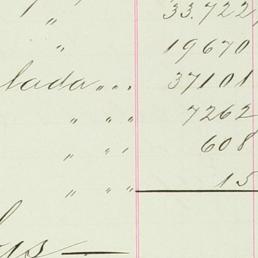 " 33.722,
" 19670
lada,... 37101
" " " 7262
" " " 608
" " " 15